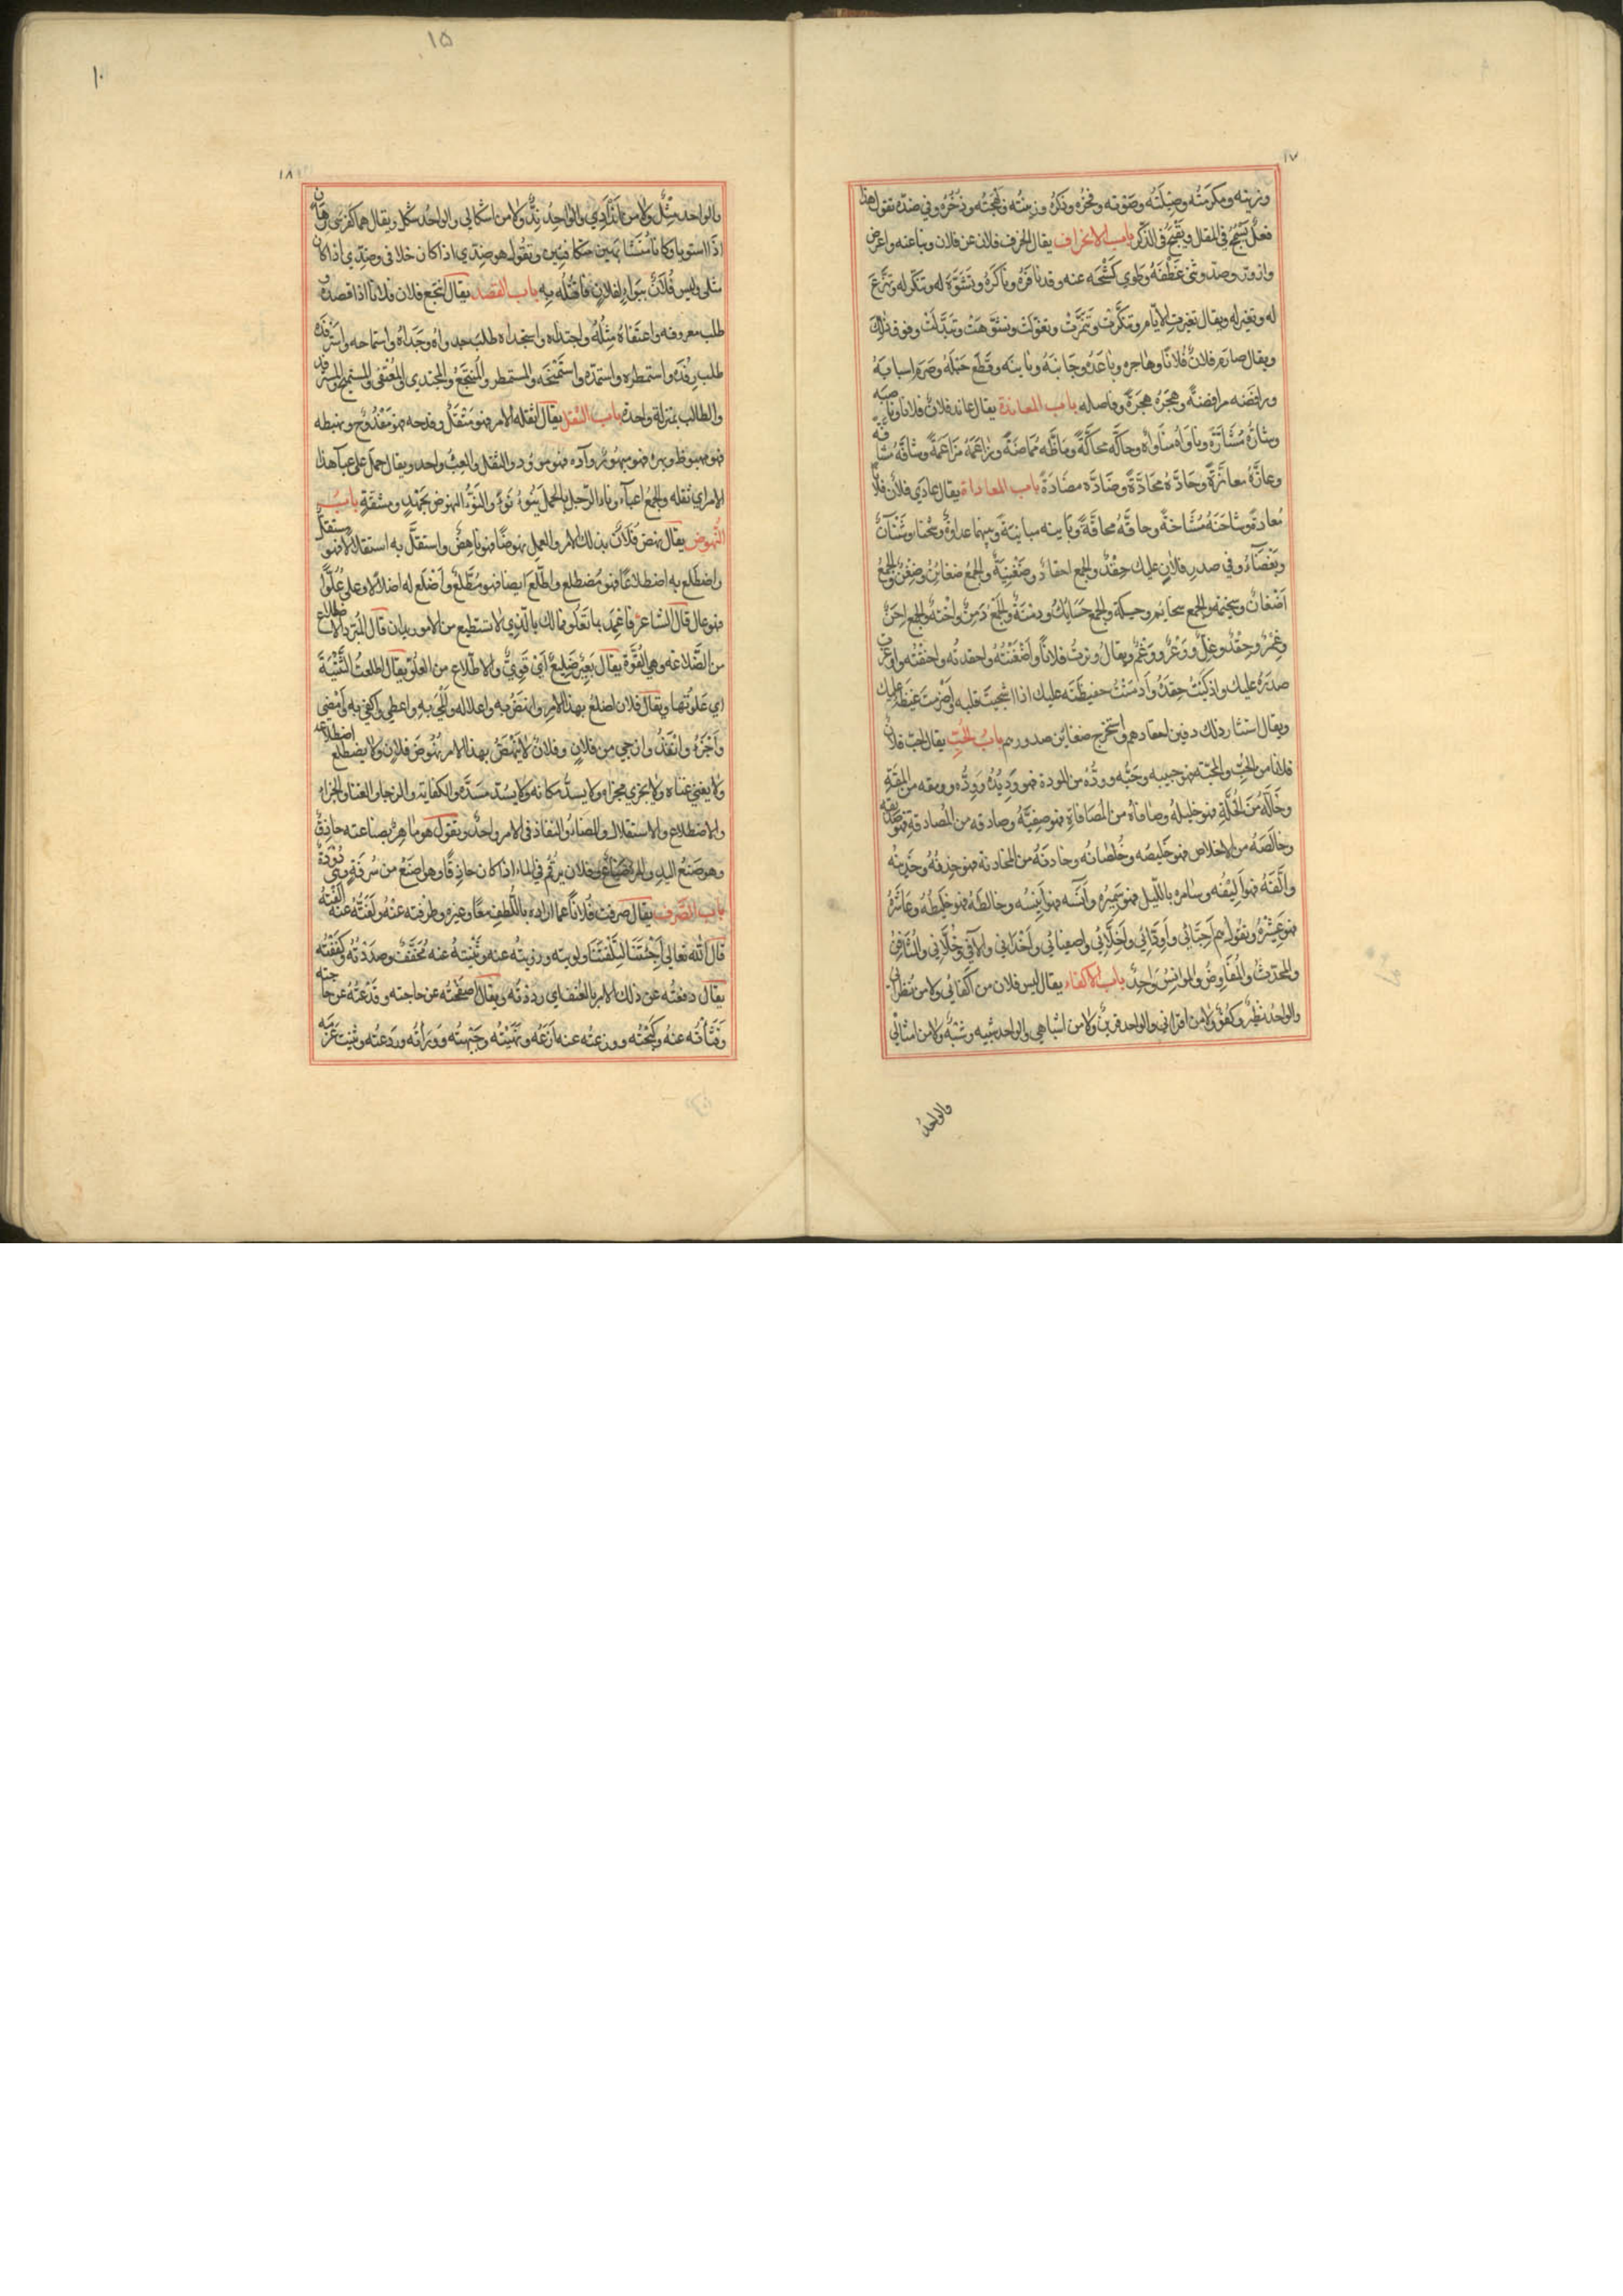 ١٧
وزينه ومكرمته وفضيلته وصوته وفخره وذكره وزينته وبهجته وذخره وفي ضده تقول هذا
فعل يسمج في المقال ويقبح في الذكر باب الانحراف يقال انحرف فلان عن فلان ونبا عنه واعرض
وازور وصد وثنى عطفه وطوى كشحه عنه وقد نافره وناكره وتشوه له وتنكر له وتنزع
له وتغير له ويقال تغيرت الايام وتنكرت وتنمرت وتغولت وتشوهت وتبدلت وفوق ذلك
ويقال صارم فلان فلانا وهاجره وباعده وجانبه وباينه وقطع حبله وصرم اسبابه
ورافضه مرافضة وهجره هجرة وفاصله باب المعاندة يقال عاند فلان فلانا وناصبه
وشاره مشارة وناواه مناواه وحاكه محاكة وماظه مماظة وزاحمه مزاحمة وشاقه مشاقة
وعازه معازة وحاده محادة وضاده مضادة باب المعاداة يقال عادى فلان فلانا
معاداة وشاحنه مشاحنة وحاقه محاقة وباينه مباينة وبينهما عداوة وشحنا وشنآن
وبغضاء وفي صدر فلان عليك حقد والجمع احقاد وضغينة والجمع ضغائن وضغن والجمع
اضغان وسخيمة والجمع سخايم وحسيكة والجمع حسايك ودمنة والجمع دمن واحنة والجمع احن
وغمر وحقد وغل ووغر ووغم ويقال وترت فلانا واضغنته واحقدته واحنقته واوغرت
صدره عليك واذكيت حقده وادمنت حفيظته عليك اذا اشجيت قلبه واضرمت غيظه عليك
ويقال استثار ذلك دفين احقادهم واستخرج ضغاين صدورهم باب الحب يقال احب فلان
فلانا من الحب والمحبة فهو حبيبه وحبه ووده من المودة فهو وديده ووده وومقه من المقة
وخالله من الخلة فهو خليله وصافاه من المصافاة فهو صفيه وصادقه من المصادقة فهو صديقه
وخالصه من الاخلاص فهو خليصه وخلصانه وخادنه من المخادنة فهو خدنه وخدينه
وآلفه فهو أليفه وسامره بالليل فهو سميره وآنسه فهو أنيسه وخالطه فهو خليطه وعاشره
فهو عشيره وتقول هم احبائي وأودائي وأخلائي واصفيائي وأخداني وألافي وخلاني والمثافن
والمحدث والمفاوض والموانس واحد باب الاكفاء يقال ليس فلان من أكفائي ولا من نظرائي
والواحد نظير وكفؤ ولا من اقراني والواحد قرين ولا من اشباهي والواحد شبيه وشبه ولا من امثالي
والواحد
١٥
١٠
١٨
والواحد مثل ولا من اندادي والواحد ند ولا من اشكالي والواحد شكل ويقال هما كفرسي رهان
اذا استويا وكانا متشابهين متكافيين وتقول هو ضدي اذا كان خلافي وضدي اذا كان
مثلي وليس فلان ببواء لفلان فاقتله به باب القصد يقال انتجع فلان فلانا اذا قصده
طلب معروفه واعتفاه مثله واجتداه واستجداه طلب جدواه وجداه واستماحه واسترفده
طلب رفده واستمطره واستمده واستمنحه والمستمطر والمنتجع والمجتدي والمعتفي والمستميح والمسترفد
والطالب بمنزلة واحدة باب الثقل يقال اثقله الامر فهو مثقل وفدحه فهو مفدوح وبهظه
فهو مبهوظ وبهره فهو مبهور وآده فهو موود والثقل والعبء واحد ويقال حمل علي عبأ هذا
الامر اي ثقله والجمع اعباء وناء الرجل بالحمل ينوء نوءا والنوء النهوض بجهد ومشقة باب
النهوض يقال نهض فلان بذلك الامر والعمل نهوضا فهو ناهض واستقل به استقلالا فهو مستقل
واضطلع به اضطلاعا فهو مضطلع واطلع ايضا فهو مطلع وأضلع له اضلاعا وعلى علوا
فهو عال قال الشاعر فاعمد بما تعلو فمالك بالذي لا تستطيع من الامور يدان قال المبرد الاضطلاع
من الضلاعة وهي القوة يقال بعير ضليع أي قوي والاطلاع من العلو يقال اطلعت الثنية
اي علوتها ويقال فلان اضلع بهذا الامر وانهض به واعلا له وأملى به واعطي واكفى به وأمضى
وأجزء وانفذ وازجى من فلان وفلان لا ينهض بهذا الامر نهوض فلان ولا يضطلع اضطلاعه
ولا يغني غناه ولا يجزي مجزاه ولا يسد مكانه ولا يسد مسده والكفاية والزجا والغنا والجزاء
والاضطلاع والاستقلال والمضاء والنفاذ في الامر واحد وتقول هو ماهر بصناعته حاذق
وهو صنع اليد والمراة صناع وفلان يرقم في الماء اذا كان حاذقا وهو اصنع من سرفة ومن تنوط
باب الصرف يقال صرفت فلانا عما اراده باللطف معا وغيره وطرفته عنه ولفته عنه الفته
قال الله تعالى أجئتنا لتلفتنا ولويته وزويته عنه وثنيته عنه مخفف وصددته وكففته
يقال دفعته عن ذلك الامر بالعنف اي رددته ويقال اصفحته عن حاجته وقدعته عن حاجته
وفثأته عنه وكبحته ووزعته عنه ازعه ونهنهته وجبهته ووراته وردعته وثنيت غربه